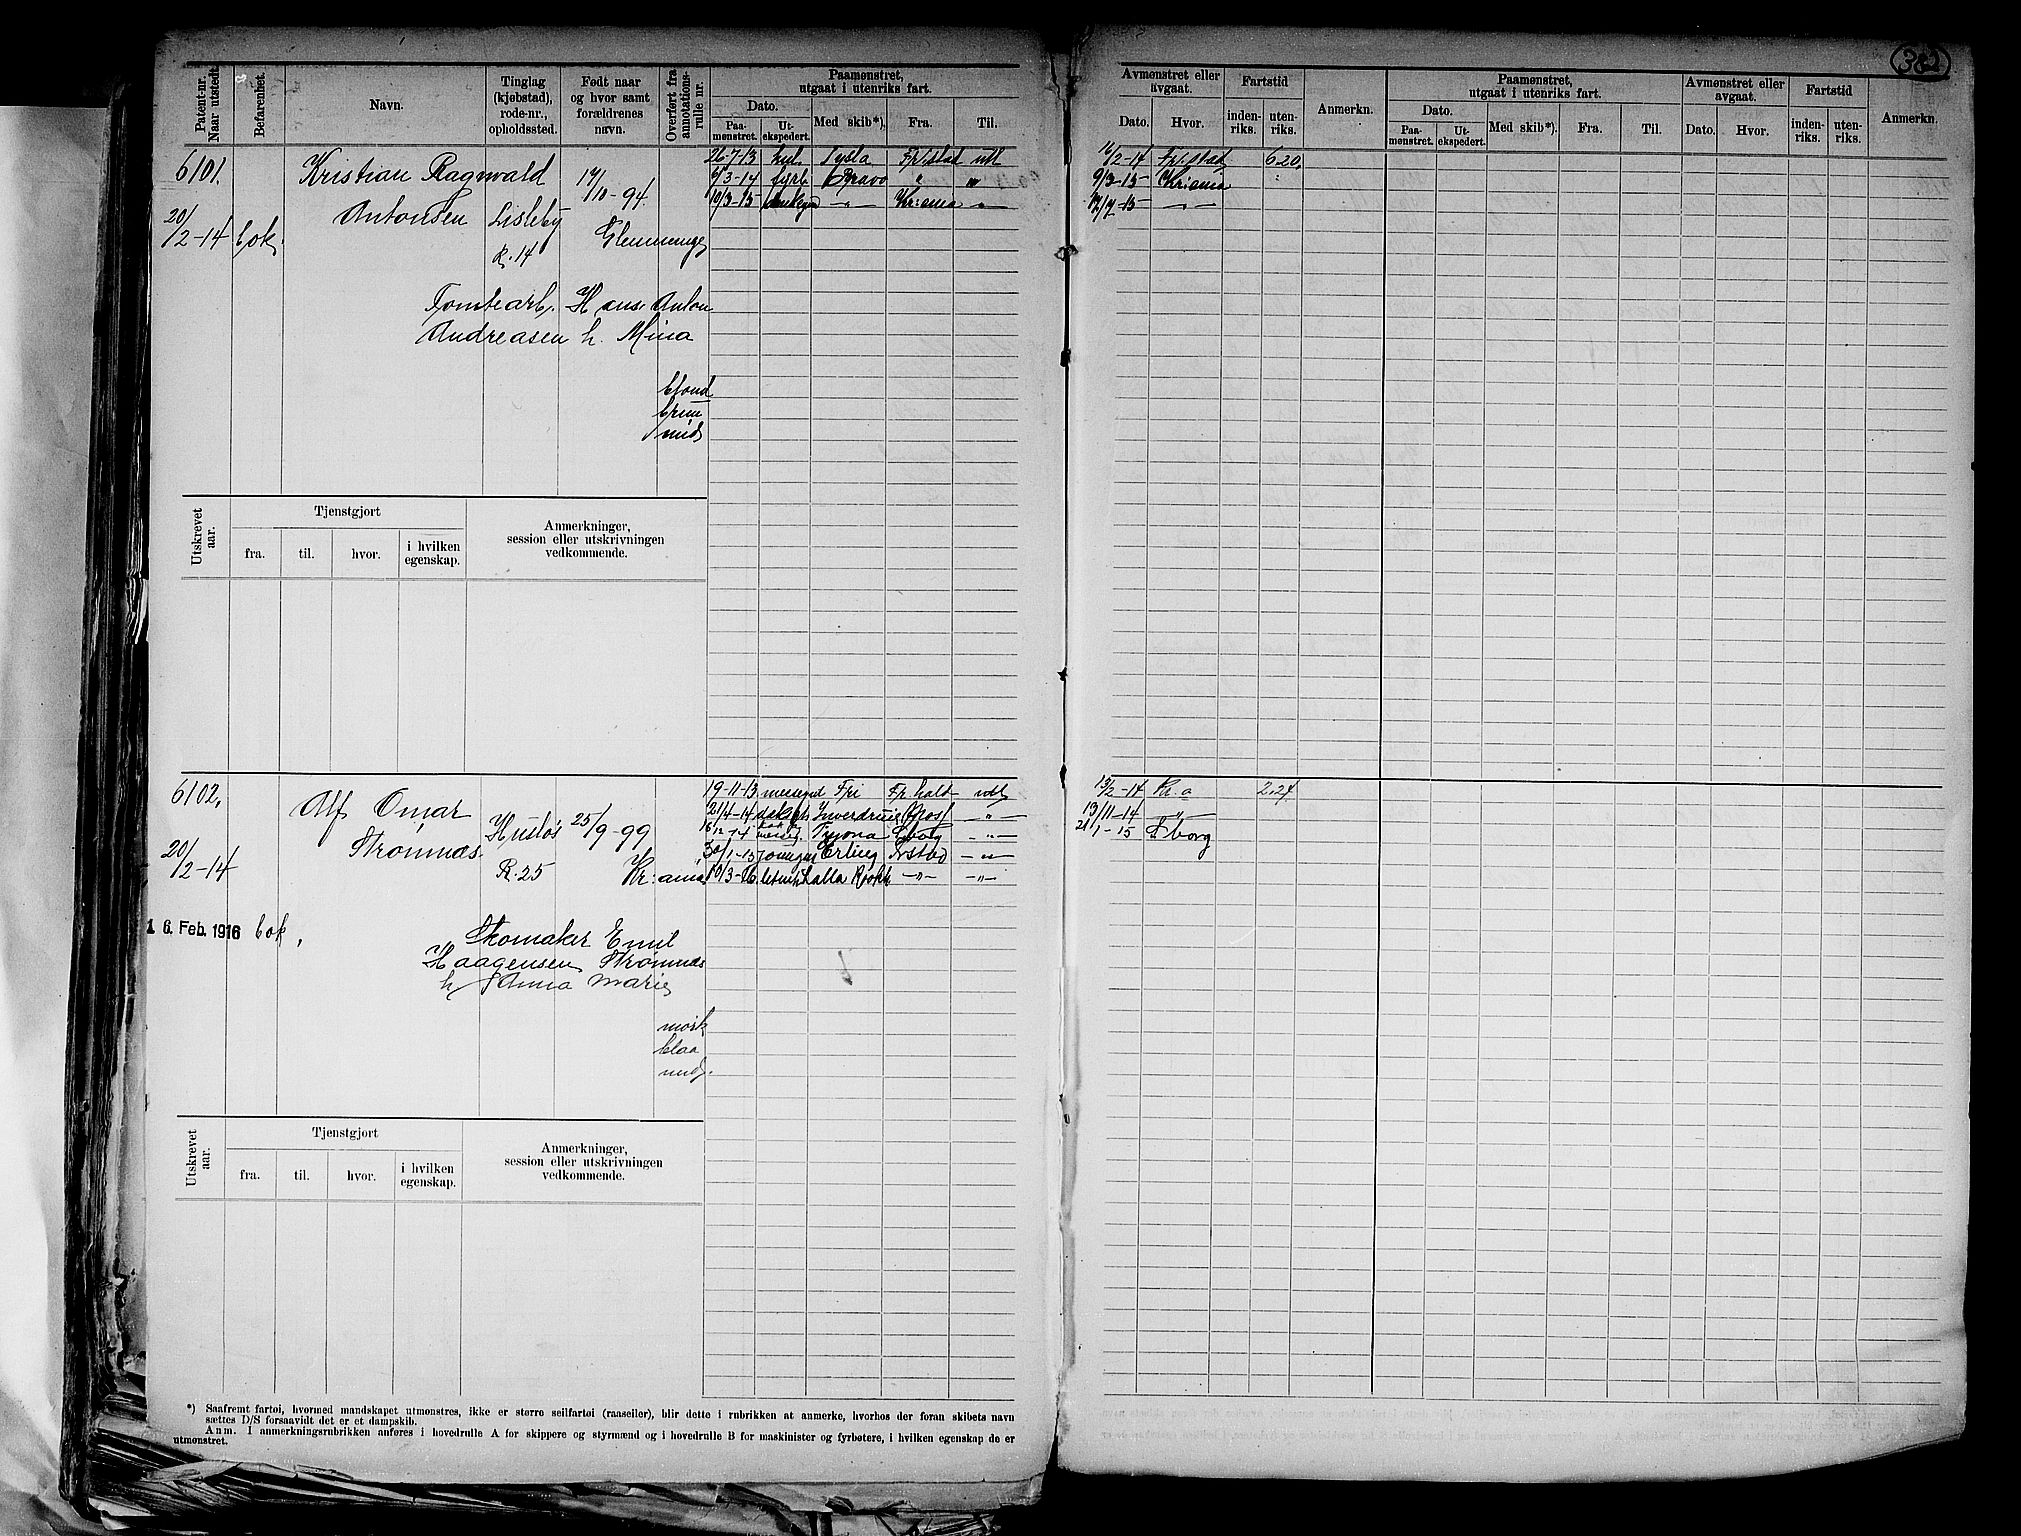 382
Patent-nr. Naar utstedt.
Befarenhet.
Navn.
Tinglag (kjøbstad), rode-nr., opholdssted.
Født naar og hvor samt forældrenes navn.
Overført fra annotations-rulle nr.
Paamønstret, utgaat i utenriks fart.
Dato.
Paa-mønstret.
Ut-ekspedert.
Med skib*).
Fra.
Til.
Avmønstret eller avgaat.
Dato.
Hvor.
Fartstid
inden-riks.
uten-riks.
Anmerkn.
Paamønstret, utgaat i utenriks fart.
Dato.
Paa-mønstret.
Ut-ekspedert.
Med skib*).
Fra.
Til.
Avmønstret eller avgaat.
Dato.
Hvor.
Fartstid
inden-riks.
uten-riks.
Anmerkn.
6101.
Kristian Ragnvald
Antonsen
20/2-14 bok.
Lisleby
R. 14
17/10-94.
Glemminge
Tomtearb. Hans Anton
Andreasen h. Mina
blond
brun
mid
26-7-13 Sysla Fr.stad utl
3-14 fyrb Bravo " "
10/3-15 -"- Kr:ania "
16/2-14 Fr.stad 6 20
9/3-15 Kr:ania
12/7-15 -"-
Utskrevet aar.
Tjenstgjort
fra.
til.
hvor.
i hvilken egenskap.
Anmerkninger, session eller utskrivningen vedkommende.
6102.
Alf Omar
Strømnæs.
20/2-14
16. Feb. 1916 bok.
Husløs
R. 25
25/9-99
Kr:ania
Skomaker Emil
Haagensen Strømnæs
h Anna Marie
mørk
blaa
mid.
19-11-13 Fri Fr.hald utl
21/4-14 Moss -"-
16/12-14 Tryona S.borg -"-
30/1-15 Erling -"-
10/3-16 -"- -"-
13/2-14 Kr.a 2.24
13/11-14 "
21/1-15 S.borg
Utskrevet aar.
Tjenstgjort
fra.
til.
hvor.
i hvilken egenskap.
Anmerkninger, session eller utskrivningen vedkommende.
*) Saafremt fartøi, hvormed mandskapet utmønstres, ikke er større seilfartøi (raaseiler), blir dette i rubrikken at anmerke, hvorhos der foran skibets navn
sættes D/S forsaavidt det er et dampskib.
Anm. I anmerkningsrubrikken anføres i hovedrulle A for skippere og styrmænd og i hovedrulle B for maskinister og fyrbøtere, i hvilken egenskap de er
utmønstret.